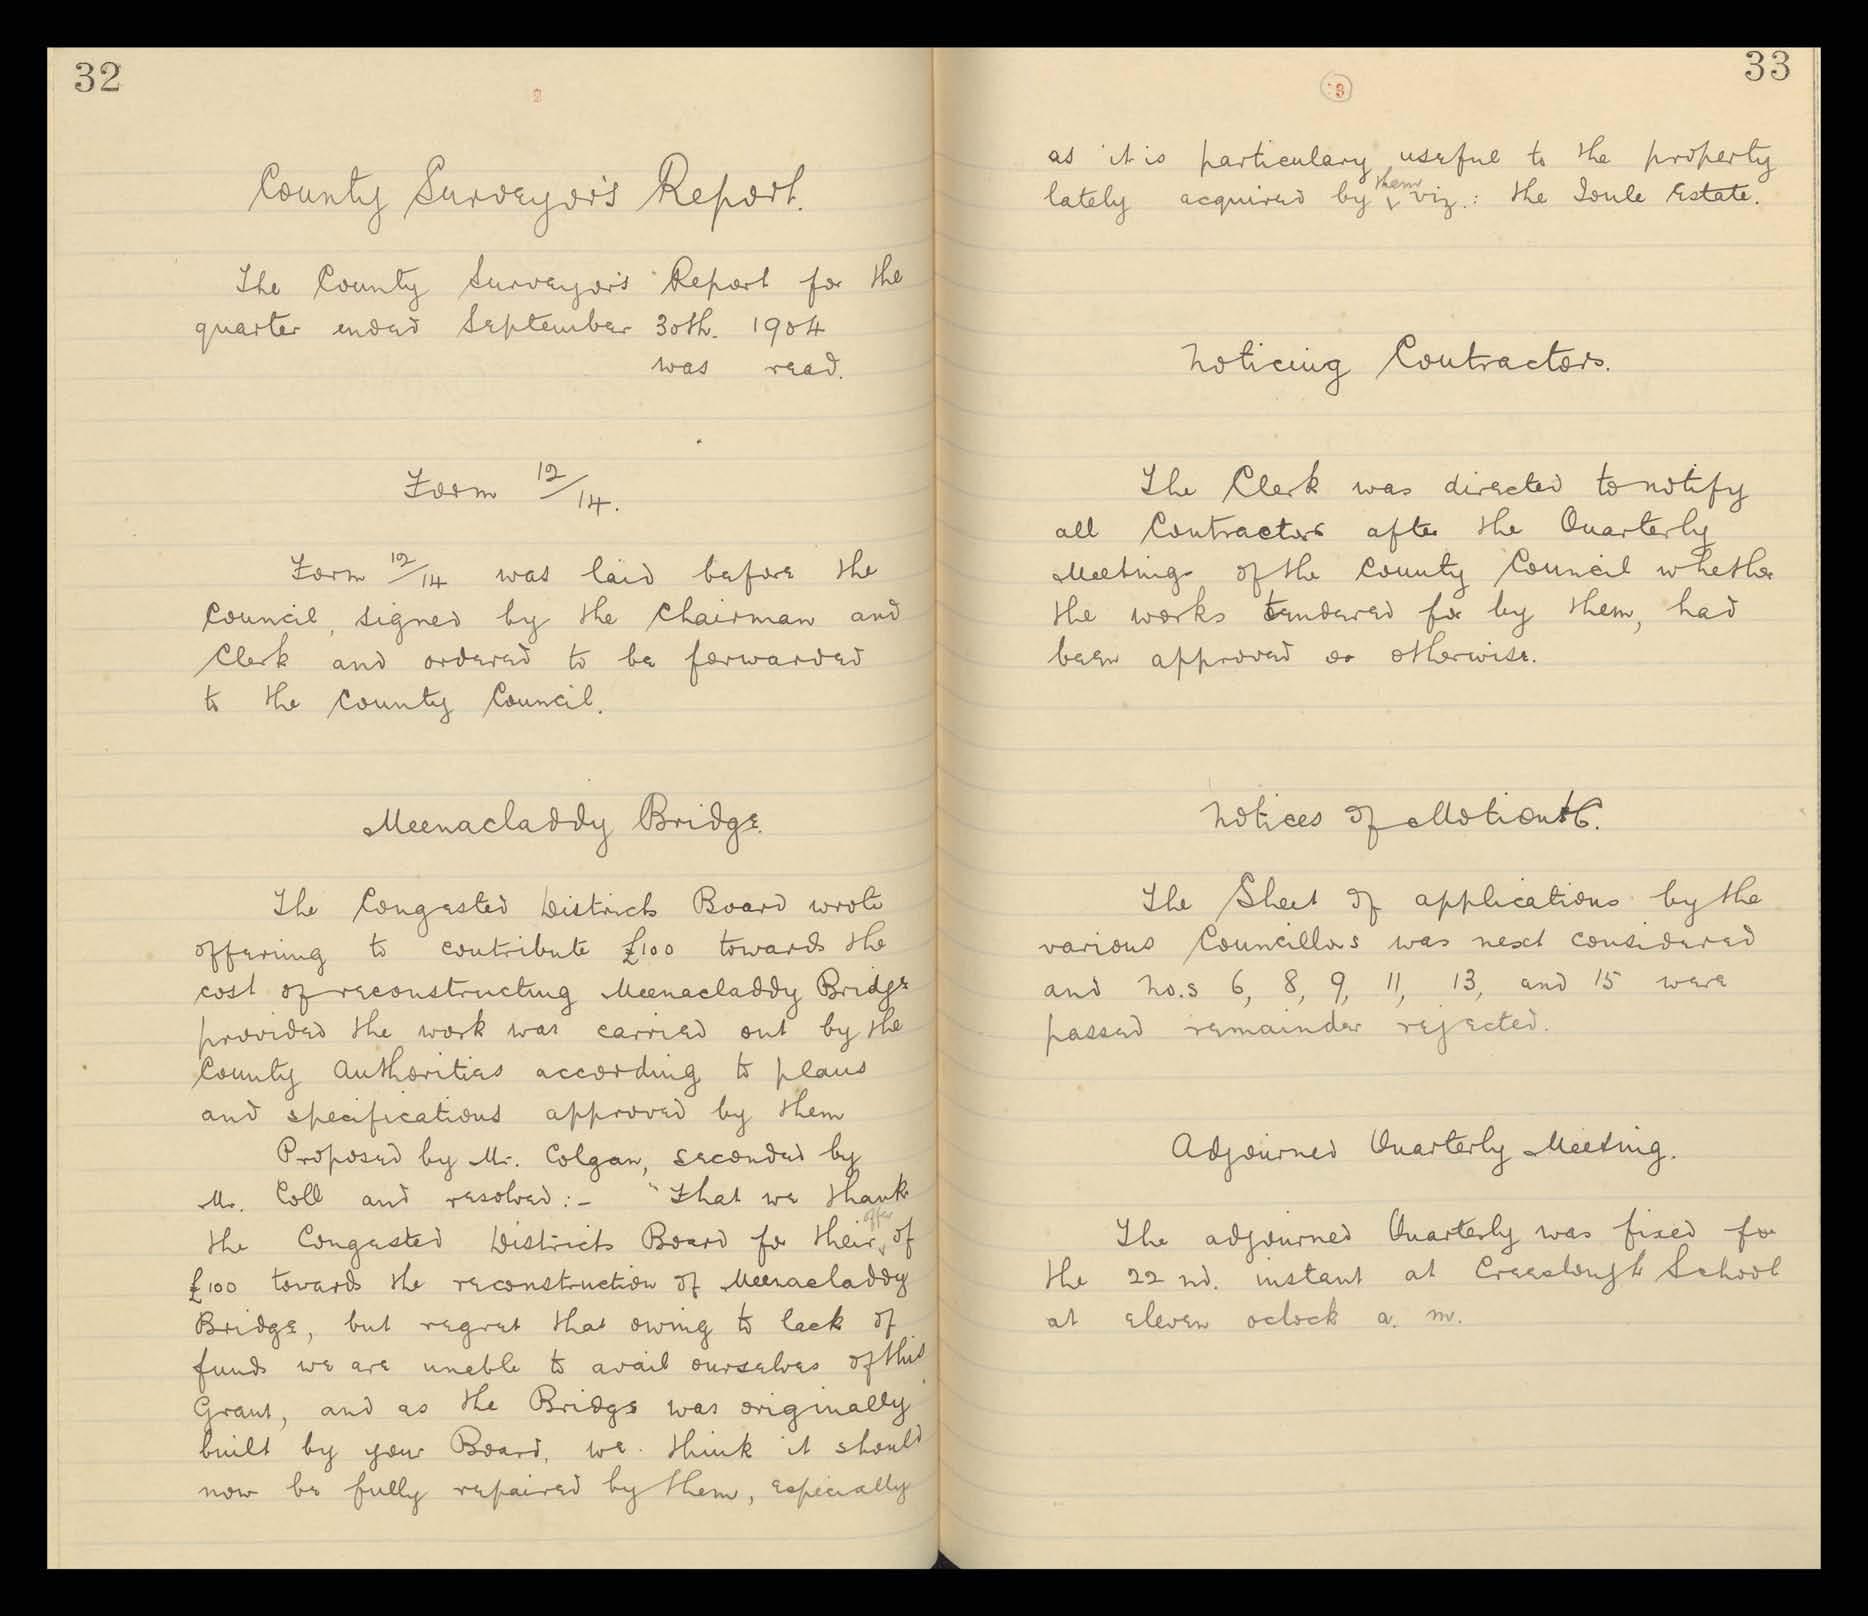 32
County Surveyor's Report.
The County Surveyor's Report for the
quarter ended September 30th. 1904
was read.
Form 12/14.
Form 12/14 was laid before the
Council, signed by the Chairman and
Clerk and ordered to be forwarded
to the County Council.
Meenacladdy Bridge.
The Congested Districts Board wrote
offering to contribute £100 towards the
cost of reconstructing Meenacladdy Bridge
provided the work was carried out by the
County Authorities according to plans
and specifications approved by them
Proposed by Mr. Colgan, seconded by
Mr. Coll and resolved:- "That we thank
the Congested Districts Board for their offer of
£100 towards the reconstruction of Meenacladdy
Bridge, but regret that owing to lack of
funds we are unable to avail ourselves of this
Grant, and as the Bridge was originally
built by your Board, we think it should
now be fully repaired by them, especially
33
as it is particulary useful to the property
lately acquired by them viz.: the Joule Estate.
Noticing Contractors.
The Clerk was directed to notify
all Contractors after the Quarterly
Meetings of the County Council whether
the works tendered for by them, had
been approved or otherwise.
Notices of Motion
The Sheet of applications by the
various Councillors was next considered
and No.s 6, 8, 9, 11, 13, and 15 were
passed remainder rejected.
Adjourned Quarterly Meeting.
The adjourned Quarterly was fixed for
the 22nd. instant at Creeslough School
at eleven oclock a. m.